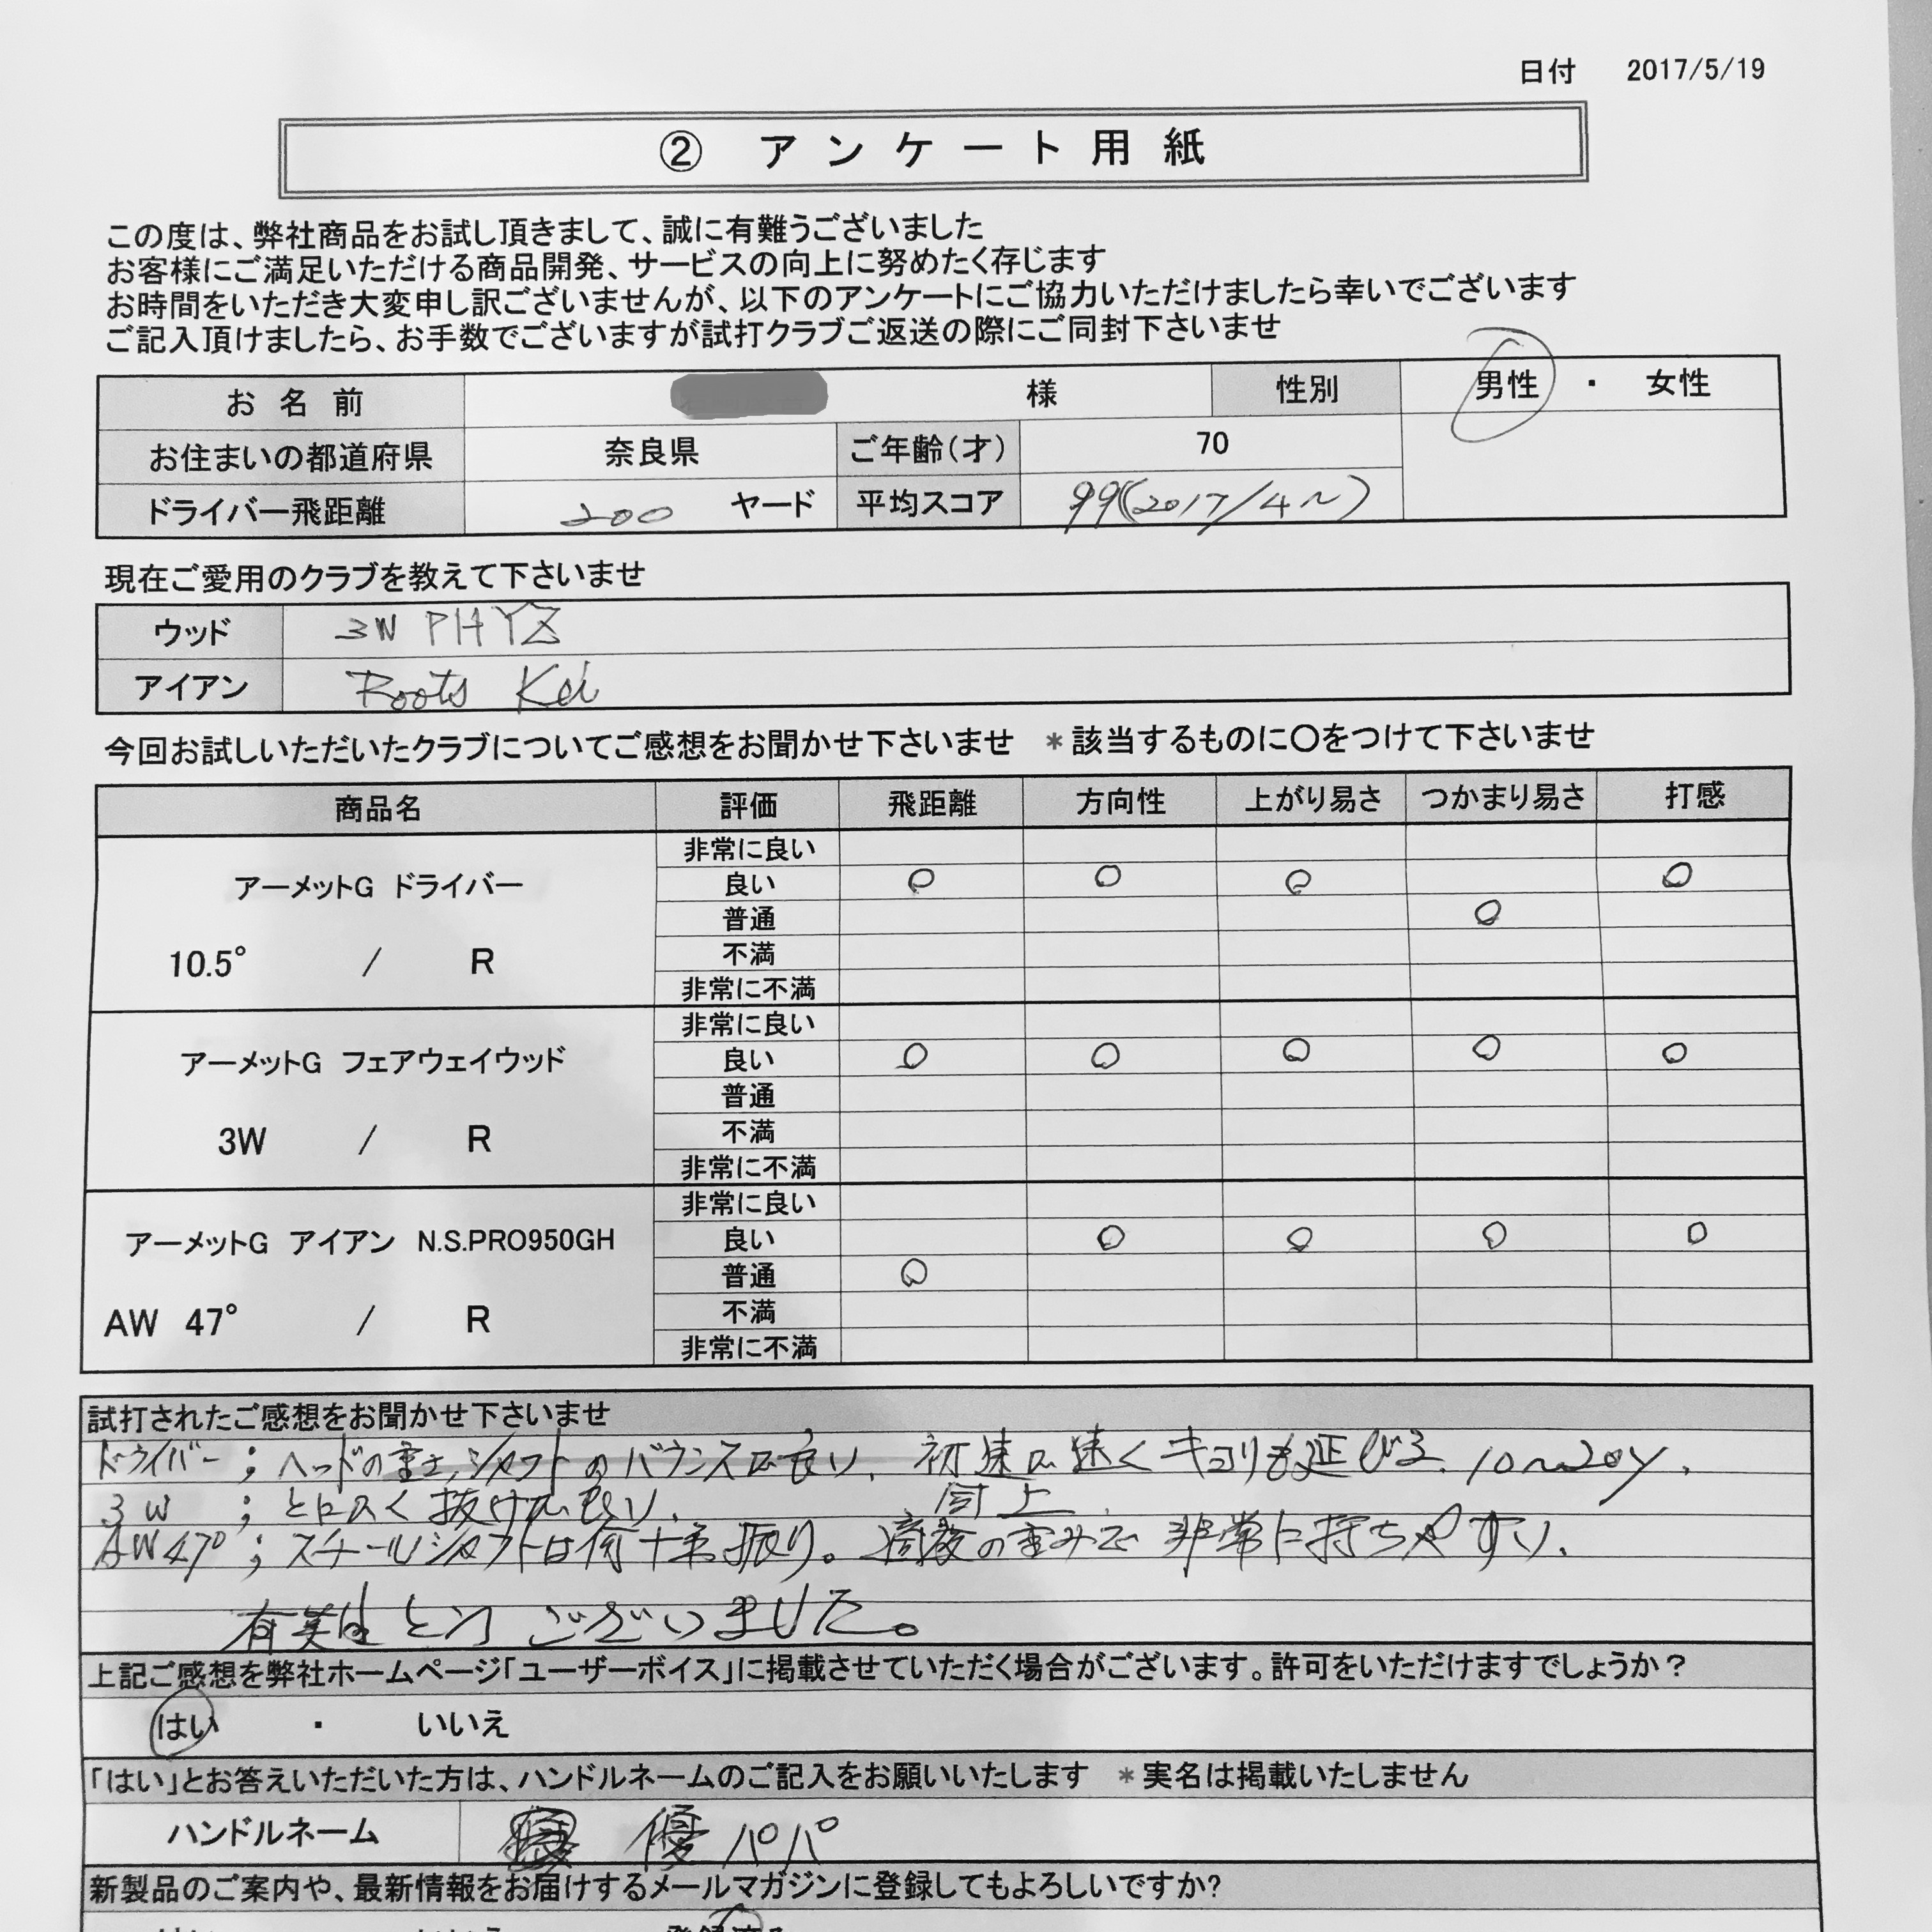 日付 2017/5/19
② アンケート用紙
この度は、弊社商品をお試し頂きまして、誠に有難うございました
お客様にご満足いただける商品開発、サービスの向上に努めたく存じます
お時間をいただき大変申し訳ございませんが、以下のアンケートにご協力いただけましたら幸いでございます
ご記入頂けましたら、お手数でございますが試打クラブご返送の際にご同封下さいませ
お名前 様 性別 男性 ・ 女性
お住まいの都道府県 奈良県 ご年齢(才) 70
ドライバー飛距離 200 ヤード 平均スコア 99(2017/4~)
現在ご愛用のクラブを教えて下さいませ
ウッド 3W PHYZ
アイアン Roots Kei
今回お試しいただいたクラブについてご感想をお聞かせ下さいませ *該当するものに〇をつけて下さいませ
商品名 評価 飛距離 方向性 上がり易さ つかまり易さ 打感
非常に良い
アーメットG ドライバー 良い ○ ○ ○ ○
普通 ○
10.5° / R 不満
非常に不満
非常に良い
アーメットG フェアウェイウッド 良い ○ ○ ○ ○ ○
普通
3W / R 不満
非常に不満
非常に良い
アーメットG アイアン N.S.PRO950GH 良い ○ ○ ○ ○
普通 ○
AW 47° / R 不満
非常に不満
試打されたご感想をお聞かせ下さいませ
ドライバー;ヘッドの重さ、シャフトのバウンスが良い、初速が速くキョリも延びる、10~20y、
3W ;とにかく抜けが良い、同上
AW47°;スチールシャフトは何十年振り。適度の重みで非常に持ちやすい、
有難とうございました。
上記ご感想を弊社ホームページ「ユーザーボイス」に掲載させていただく場合がございます。許可をいただけますでしょうか？
はい ・ いいえ
「はい」とお答えいただいた方は、ハンドルネームのご記入をお願いいたします *実名は掲載いたしません
ハンドルネーム 優パパ
新製品のご案内や、最新情報をお届けするメールマガジンに登録してもよろしいですか?